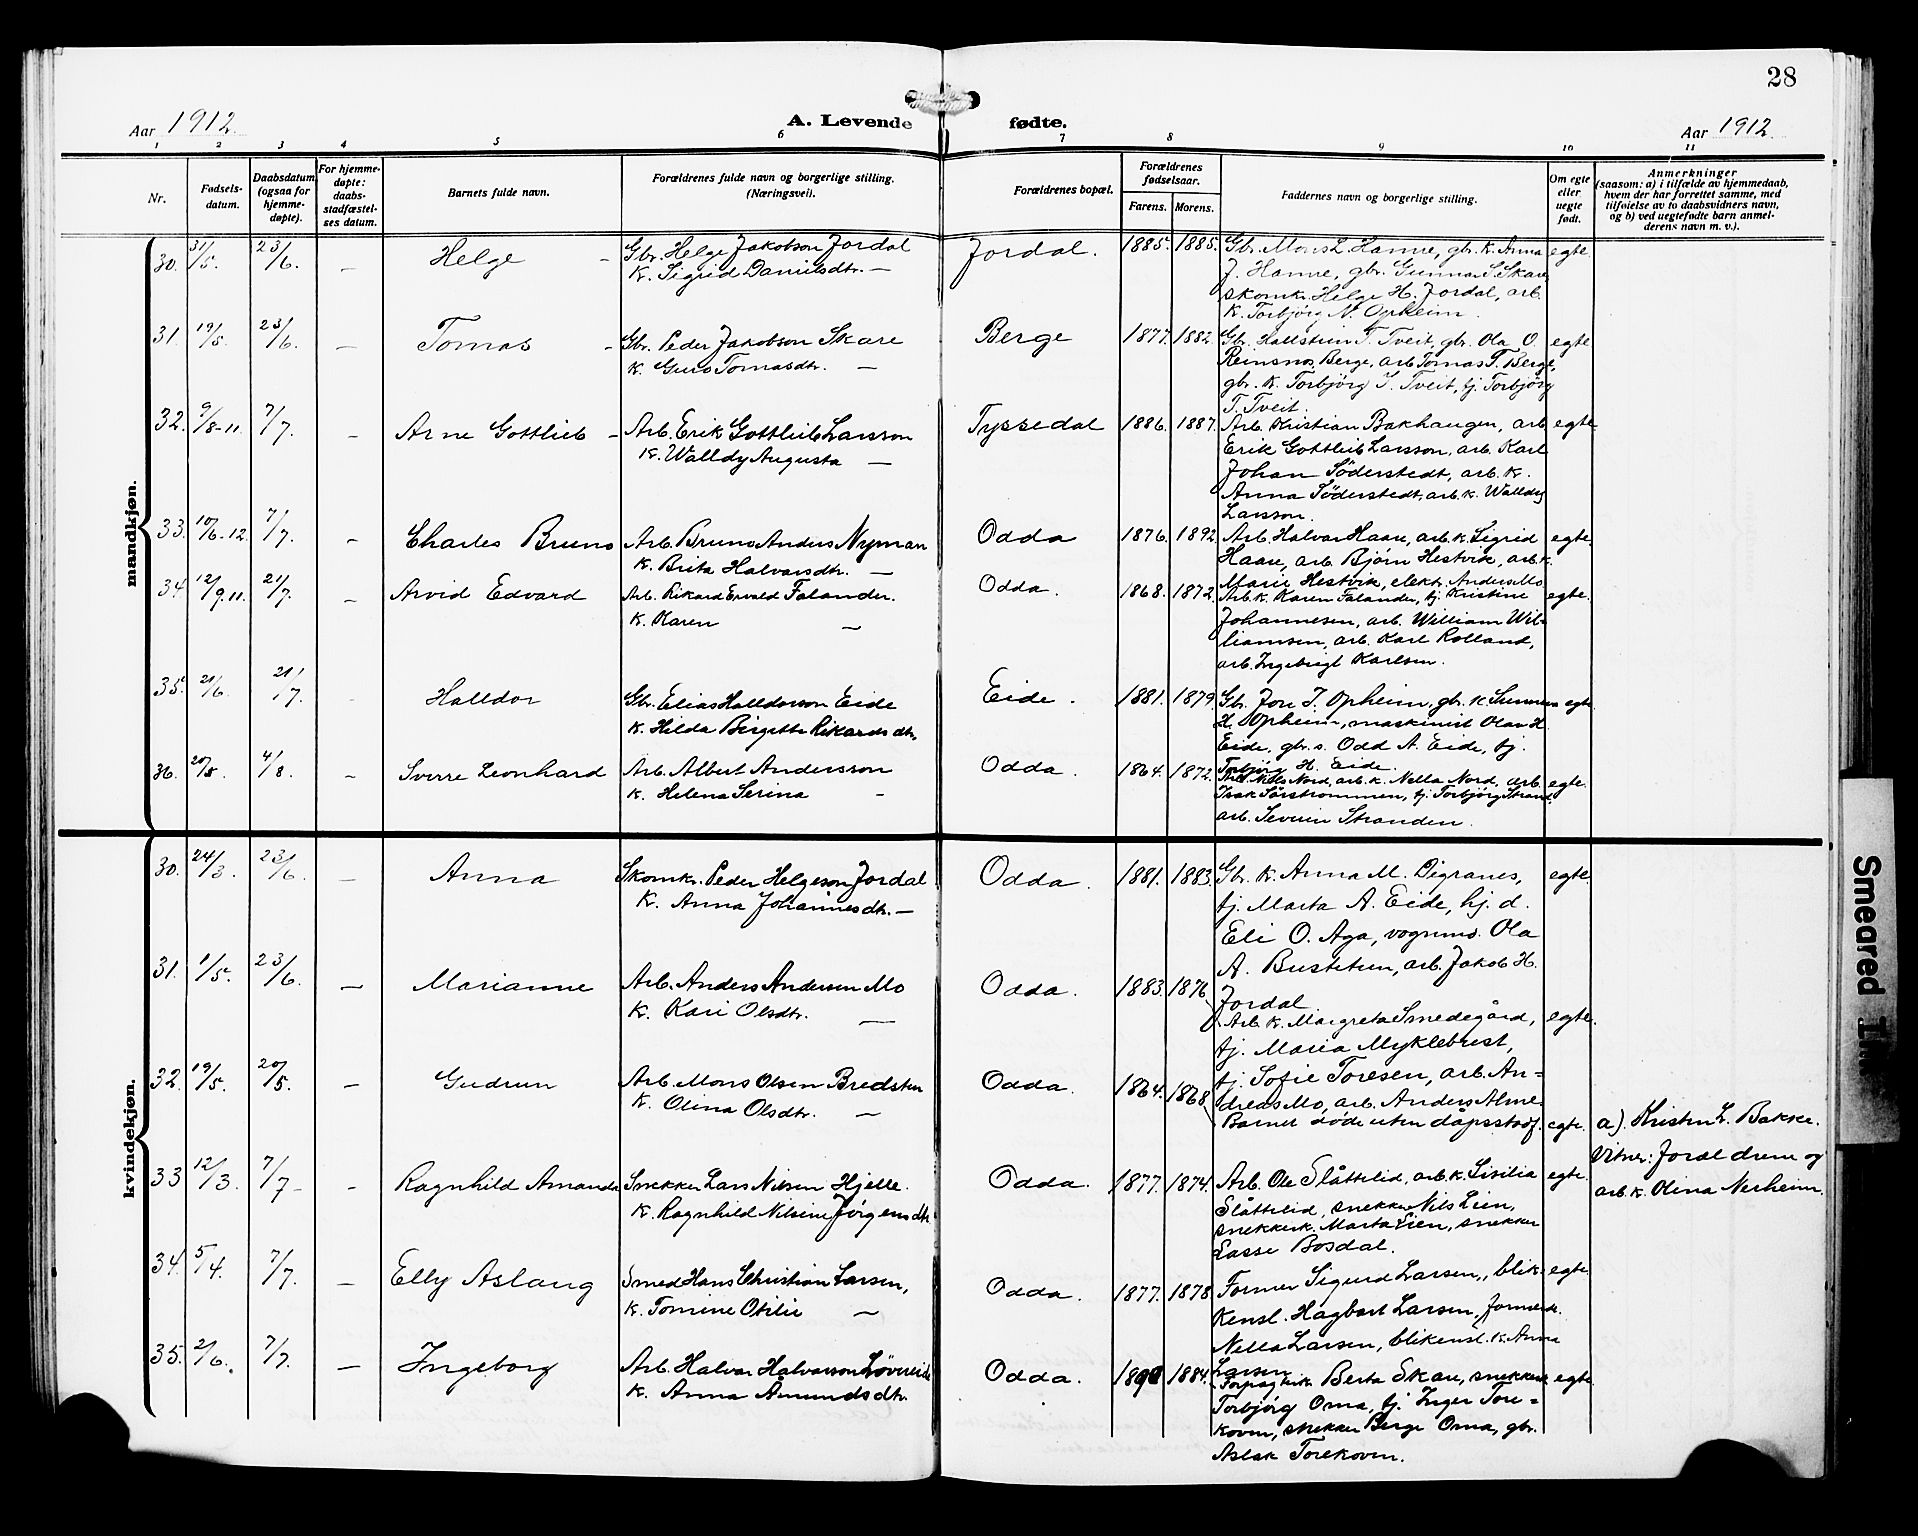 28
Aar 1912.
A. Levende fødte.
Aar 1912.
1 2 3 4 5 6 7 8 9 10 11
Nr.
Fødsels-
datum.
Daabsdatum
(ogsaa for
hjemme-
døpte).
For hjemme-
døpte:
daabs-
stadfæstel-
ses datum.
Barnets fulde navn.
Forældrenes fulde navn og borgerlige stilling.
(Næringsvei).
Forældrenes bopæl.
Forældrenes
fødselsaar.
Farens. Morens.
Faddernes navn og borgerlige stilling.
Om egte
eller
uegte
født.
Anmerkninger
(saasom: a) i tilfælde av hjemmedaab,
hvem der har forrettet samme, med
tilføielse av to daabsvidners navn,
og b) ved uegtefødte barn anmel-
derens navn m. v.).
mandkjøn.
30. 31/5. 23/6. – Helge – Gbr. Helge Jakobson Jordal Jordal. 1885. 1885. Gbr. Mons L. Hamre, gbr. k. Anna egte
k. Sigrid Danielsdtr. – J. Hamre, gbr. Gunnar S. Skare,
skomk. Helge H. Jordal, arb.
k. Torbjörg N. Opheim.
31. 19/5. 23/6. – Tomas – Gbr. Peder Jakobson Skare Berge 1877. 1882. Gbr. Hallstein T. Tveit, gbr. Ola O. egte
k. Guro Tomasdtr. – Reinsnos, Berge, arb. Tomas T. Berge,
gbr. k. Torbjörg T. Tveit, tj. Torbjörg
T. Tveit.
32. 9/8-11. 7/7. – Arne Gottlieb – Arb. Erik Gottlieb Larsson Tyssedal 1886. 1887. Arb. Kristian Bakhaugen, arb. egte
k. Walldy Augusta – Erik Gottlieb Larsson, arb. Karl
Johan Söderstedt, arb. k.
Anna Söderstedt, arb. k. Walldy
Larsson.
33. 10/6-12. 7/7. – Charles Bruno Arb. Bruno Anders Nyman Odda 1876. 1892 Arb. Halvar Haare, arb. k. Sigrid egte.
k. Brita Halvarsdtr. – Haare, arb. Bjørn Hestvik, arb. k.
Marie Hestvik, elekt. Anders Mo
34 12/9.11. 21/7. – Arvid Edvard Arb. Rikard Ervald Falander. Odda. 1868. 1872. Arb. k. Karen Falander, tj. Kristine egte.
k. Karen – Johannesen, arb. William Wil-
liamsen, arb. Karl Rolland,
arb. Ingebrigt Karlsen.
35. 21/6. 21/7. Halldor Gbr. Elias Halldorson Eide Eide. 1881. 1879. Gbr. Jon J. Opheim, gbr. k. egte
k. Hilda Birgitte Rikardsdtr. H. Opheim, maskinist Olav H.
Eide, gbr. s. Odd A. Eide, tj.
Torbjörg H. Eide.
36. 20/5. 4/8. – Sverre Leonhard Arb. Albert Andersson Odda. 1864. 1872. Arb. Nils Nord, arb. k. Nella Nord, arb. egte.
k. Helena Serina – Isak Sörstrommen, tj. Torbjörg Strand,
arb. Severin Stranden.
kvindekjøn.
30. 24/3. 23/6. – Anna Skomk. Peder Helgeson Jordal Odda. 1881. 1883. Gbr. k. Anna M. Digranes, egte.
k. Anna Johannesdtr. – tj. Marta A. Eide, hj. d.
Eli O. Aga, vognm. Ola
A. Bustetun, arb. Jakob H.
Jordal.
31. 1/5. 23/6. – Marianne Arb. Anders Andersen Mo Odda. 1883. 1876. Arb. k. Margreta Smedegård, egte.
k. Kari Olsdtr. – tj. Maria Myklebust,
tj. Sofie Toresen, arb. An-
dreas Mo, arb. Anders Alme.
32. 19/5. 20/5. – Gudrun Arb. Mons Olsen Bredsten Odda. 1864. 1868. Barnet döde uten dåpsstadf. egte. a). Kristen L. Bakke.
k. Olina Olsdtr. – Vitner: Jord drum og
arb. k. Olina Nerheim.
33 12/3. 7/7 – Ragnhild Amanda Snekker Lars Nilsen Hjelle. Odda. 1877. 1874. Arb. Ole Slåttelid, arb. k. Sisilia egte.
k. Ragnhild Nilsine Jörgensdtr. Slåttelid, snekker Nils Lien,
snekkerk. Marta Lien, snekker
Lasse Bosdal.
34. 5/4. 7/7. – Elly Aslaug Smed Hans Christian Larsen, Odda. 1877. 1878. Former Sigurd Larsen, blik- egte.
k. Tomine Otilie – kensl. Hagbart Larsen, formerk.
Nella Larsen, blikensl. k. Anna
Larsen
35. 2/6. 7/7. – Ingeborg Arb. Halvar Halvarson Løvreide Odda. 1890 1884. Forpagterk. Berta Skare, snekkerk. egte.
k. Anna Amundsdtr. Torbjörg Oma, tj. Inger Tore-
koven, snekker Berge Oma, gbr.
Aslak Torekoven.
Smeared